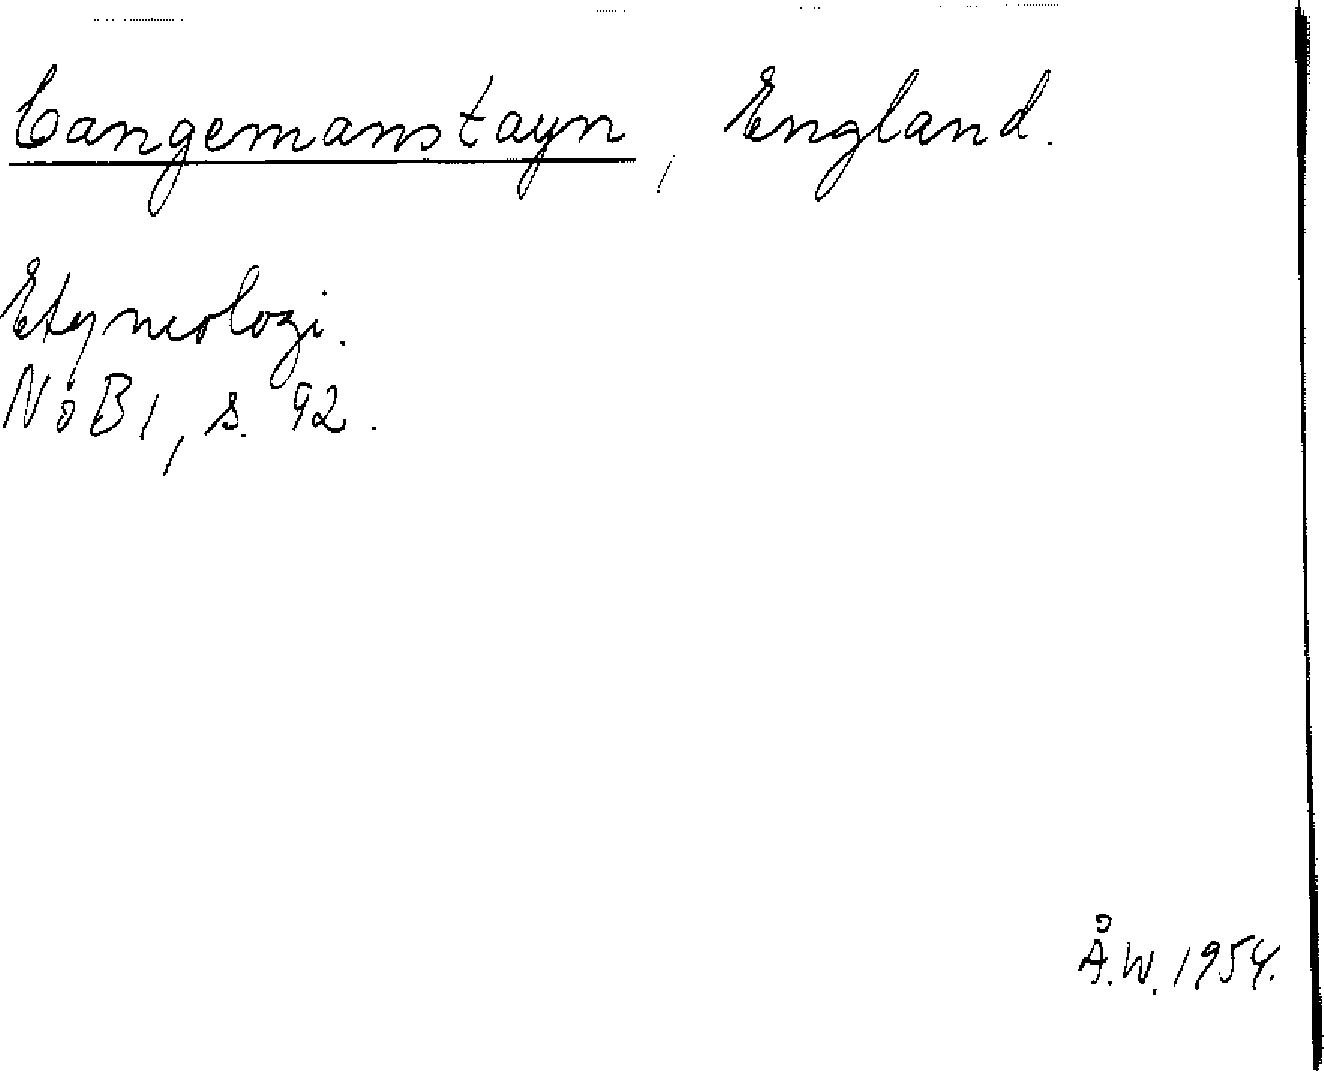 Cangemanstayn, England.
Etymologi.
NoB 1, s. 92.
Å.W. 1954.